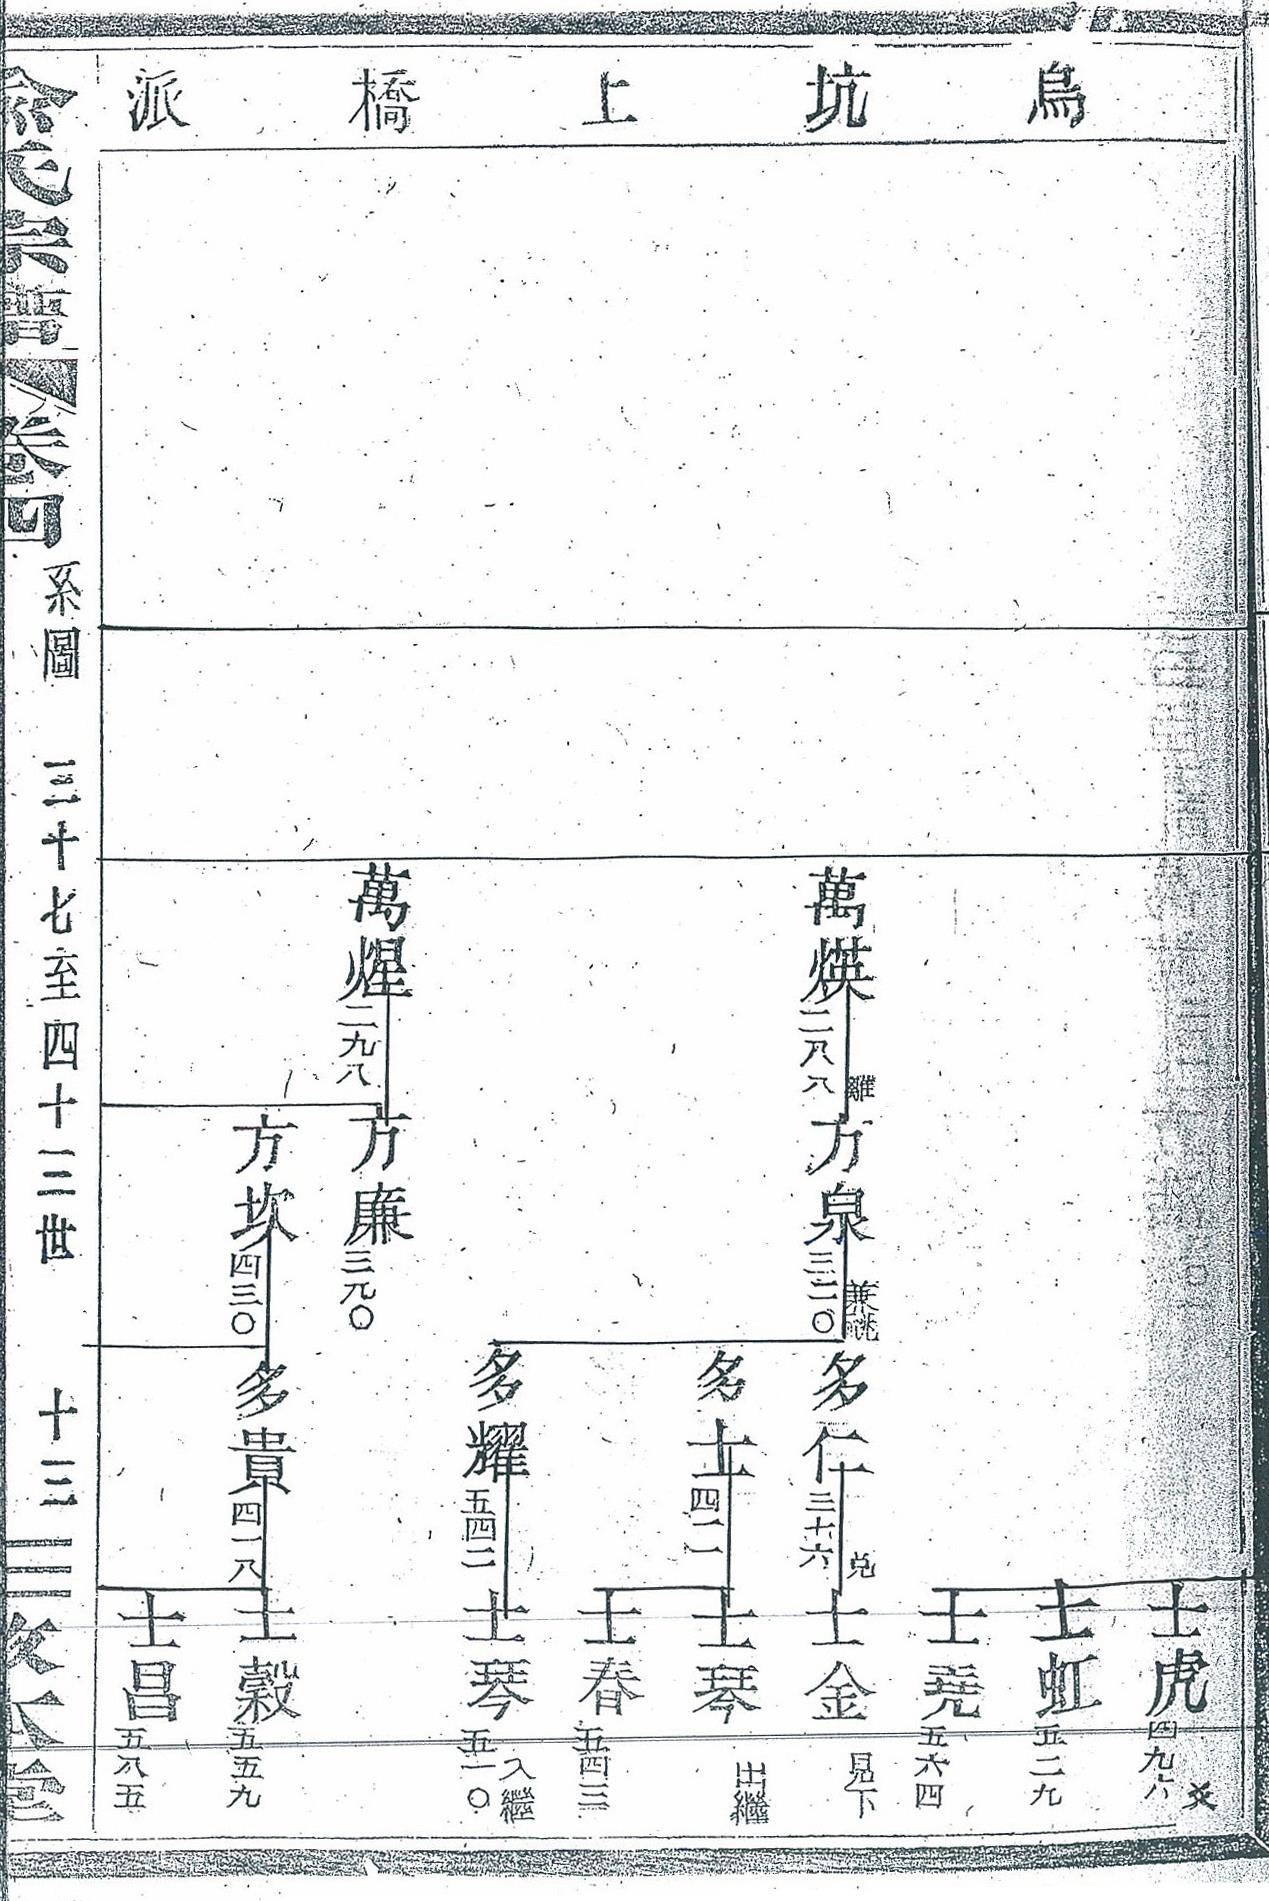 烏坑上橋派
萬煐
二八八
離
萬煋
二九八
方泉
三二〇
兼祧
方廉
三九〇
方坎
四三〇
多仁
三七六
兌
多士
四二一
多耀
五四二
多貴
四一八
士虎
四九六
爻
士虹
五二九
士堯
五六四
士金
見下
士琴
出繼
士春
五四三
士琴
五一〇
入繼
士穀
五五九
士昌
五八五
俞氏宗譜
卷四
系圖
三十七至四十二世
十三
敦本堂